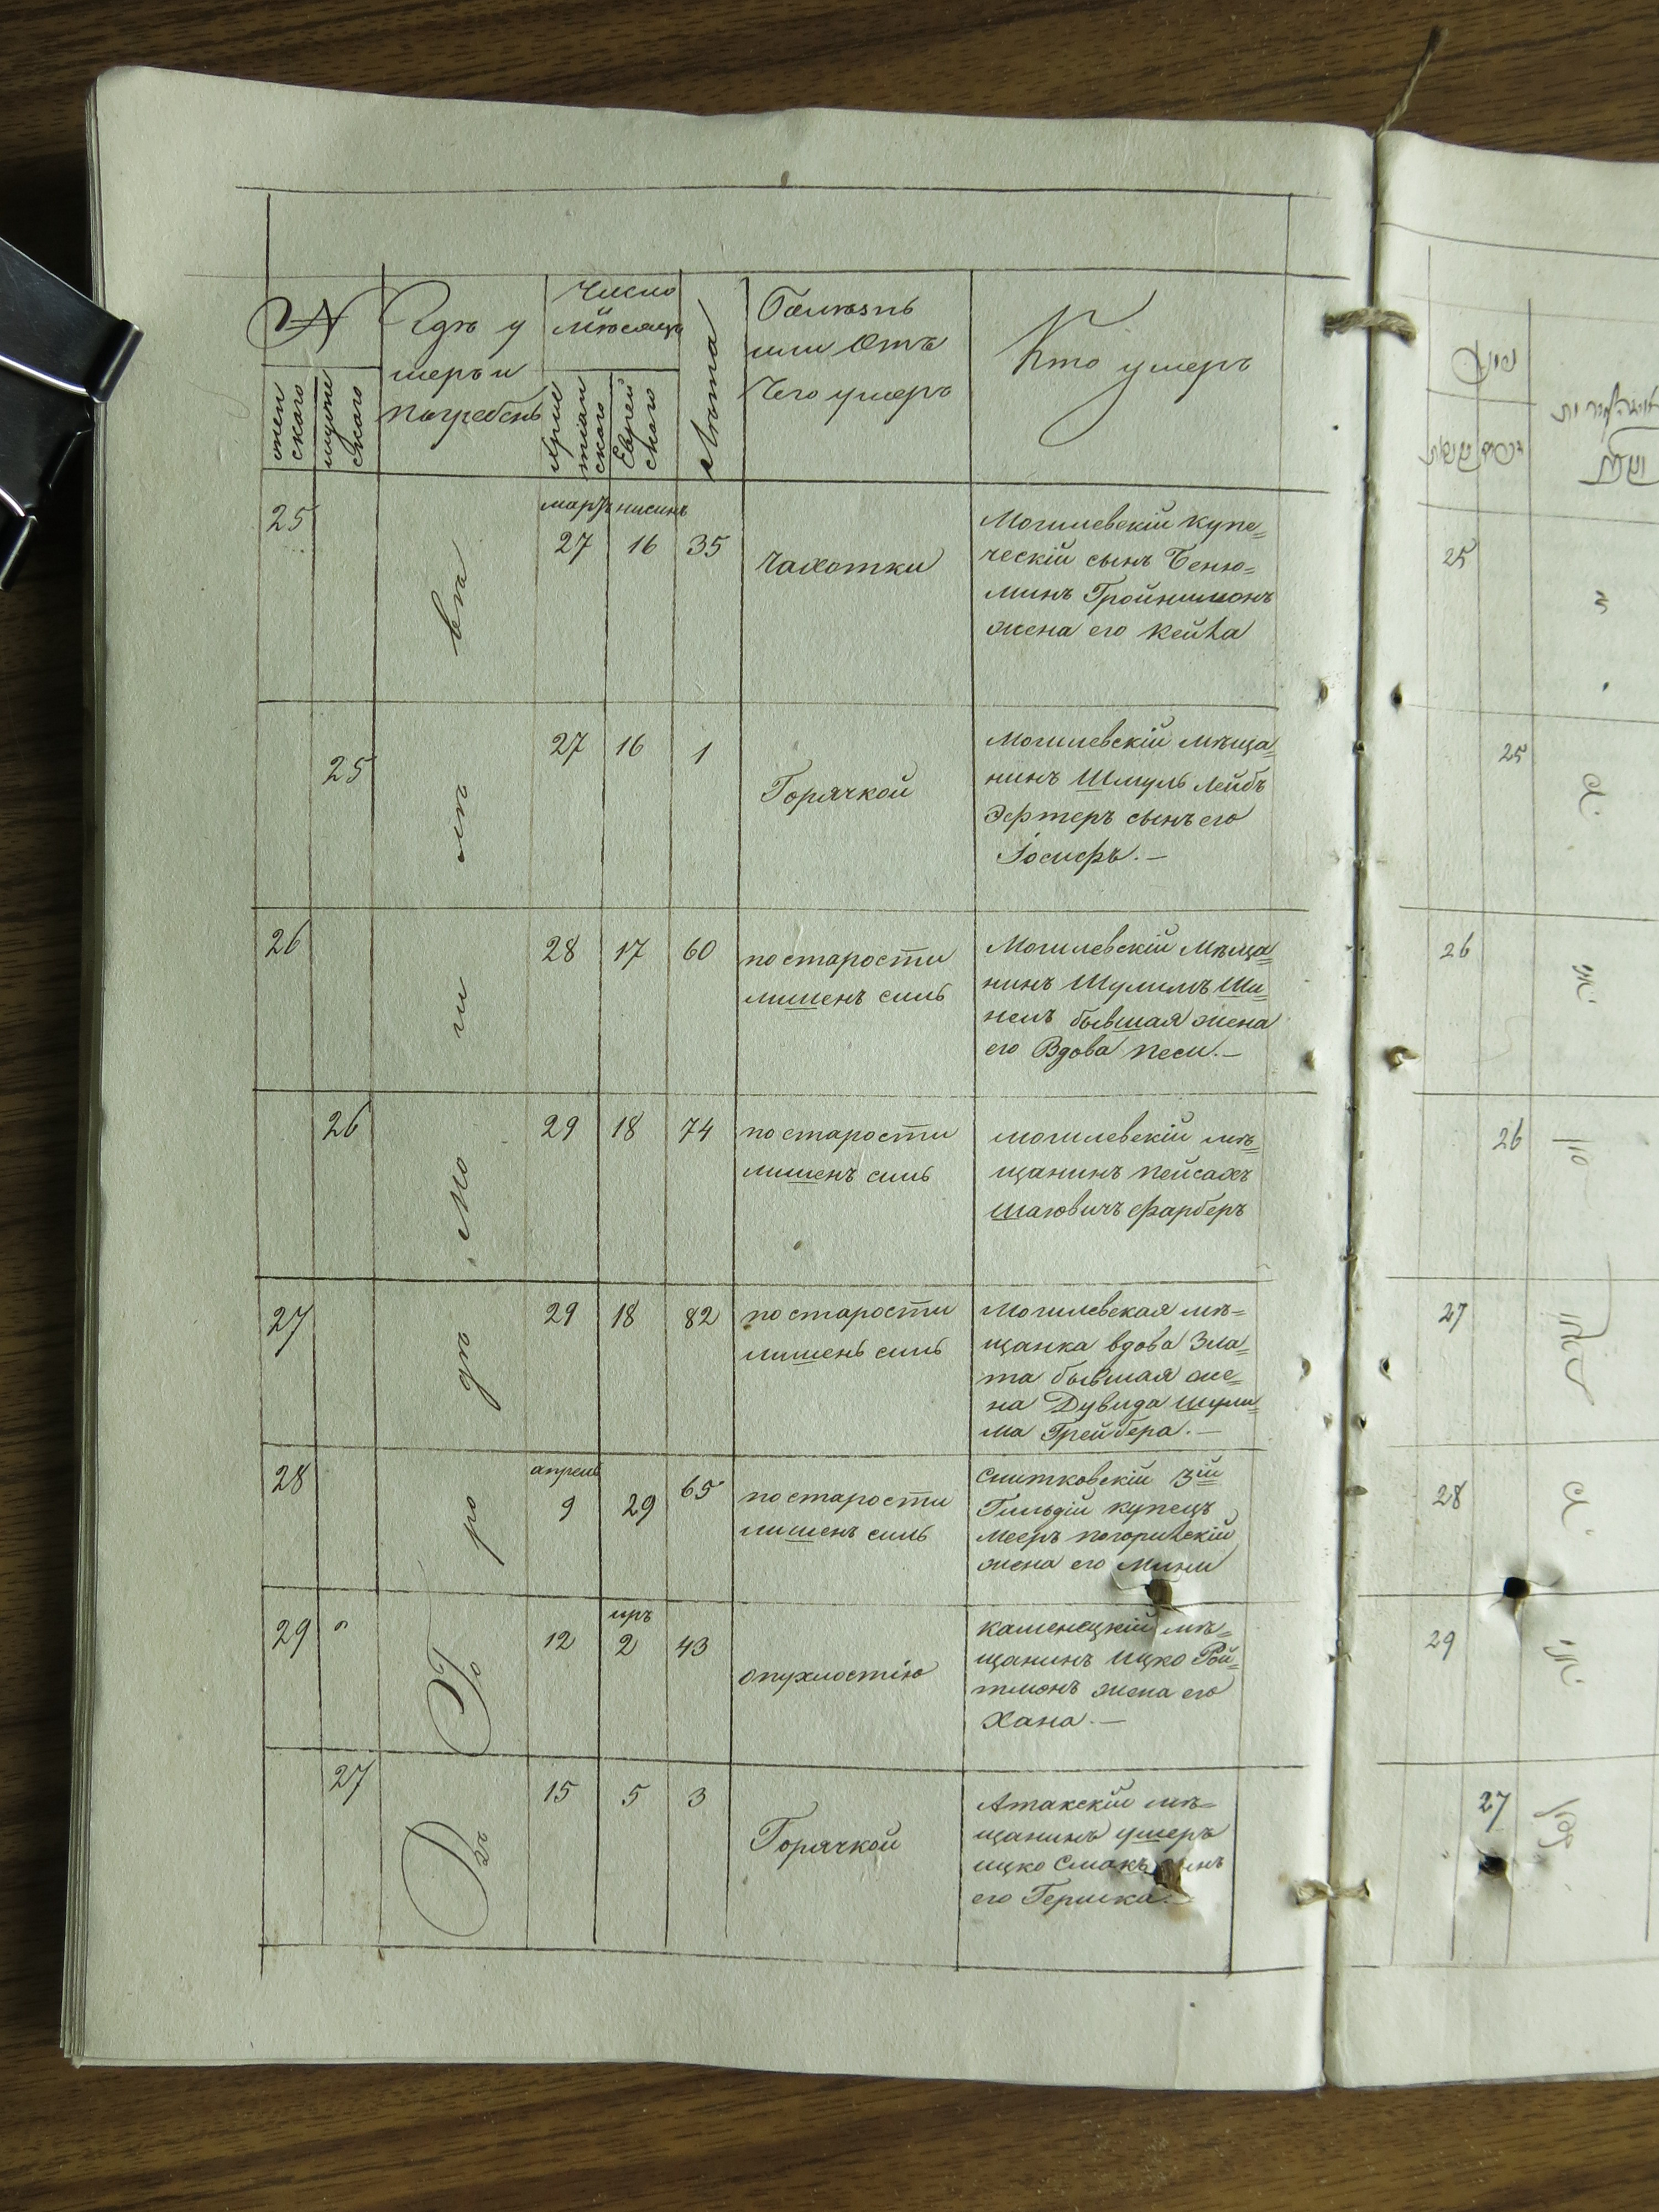 №
жен
ского
мужс
ского
Гдѣ у
меръ и
погребенъ
Число
мѣсяцъ
Хрис
тіан
ского
Еврей
ского
Лѣта
Болѣзнь
или Отъ
Чего умеръ
Кто умеръ
25
мартъ нисинъ
27 16 35
Чахотки
Могилевскій купе=
ческій сынъ Беню=
минъ Гройнимонъ
жена его Кейла
25
27 16 1
Горячкой
Могилевскій мѣща=
нинъ Шмуль Лейбъ
Эфтеръ сынъ его
Іосифъ.—
26
28 17 60
по старости
лишенъ силъ
Могилевскій мѣща=
нинъ Шулимъ Ши=
нелъ бывшая жена
его Вдова Песи.—
26
29 18 74
по старости
лишенъ силъ
могилевскій мѣ=
щанинъ Пейсахъ
Шаювичъ Фарберъ
27
29 18 82
по старости
лишенъ силъ
Могилевская мѣ=
щанка вдова Зла=
та бывшая же=
на Дувида Шули=
ма Грейбера.—
28
апрель
9 29 65
по старости
лишенъ силъ
Снитковскій 3ій
Гильдіи купецъ
Мееръ Погорилскій
жена его Мини
29
иръ
12 2 43
опухлостію
каменецкій мѣ=
щанинъ Ицко Рой=
тмонъ жена его
Хана.—
27
15 5 3
Горячкой
Атакскій мѣ=
щанинъ умеръ
ицко Смакъ сынъ
его Гершка.
Въ Го ро дѣ Мо ги лѣ вѣ
25
25
26
26
27
28
29
27